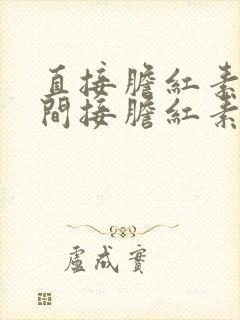 直接膽紅素
間接膽紅素
盧成實